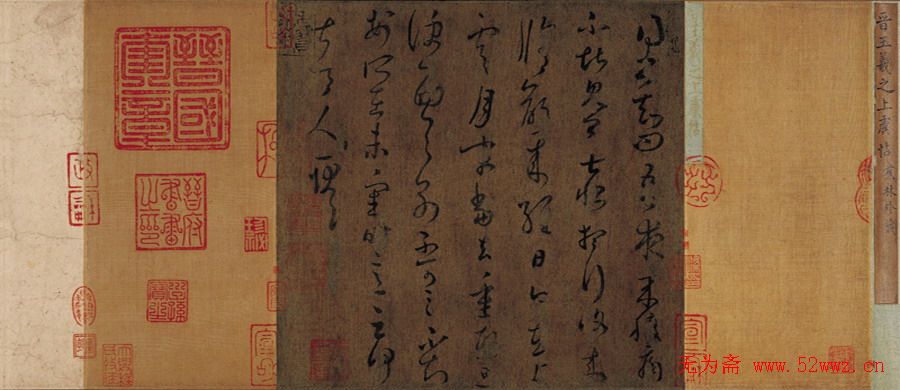 晉王羲之上虞帖
得書知問吾夜來腹痛
不堪見卿甚恨想行復來
脩齡來經日今在上
虞月末當去重熙旦
便西與別不可言不知
安所在未審時意云何
甚令人耿耿
晉國奎章
晉府書畫之印
无为斋 www.52wwz.cn